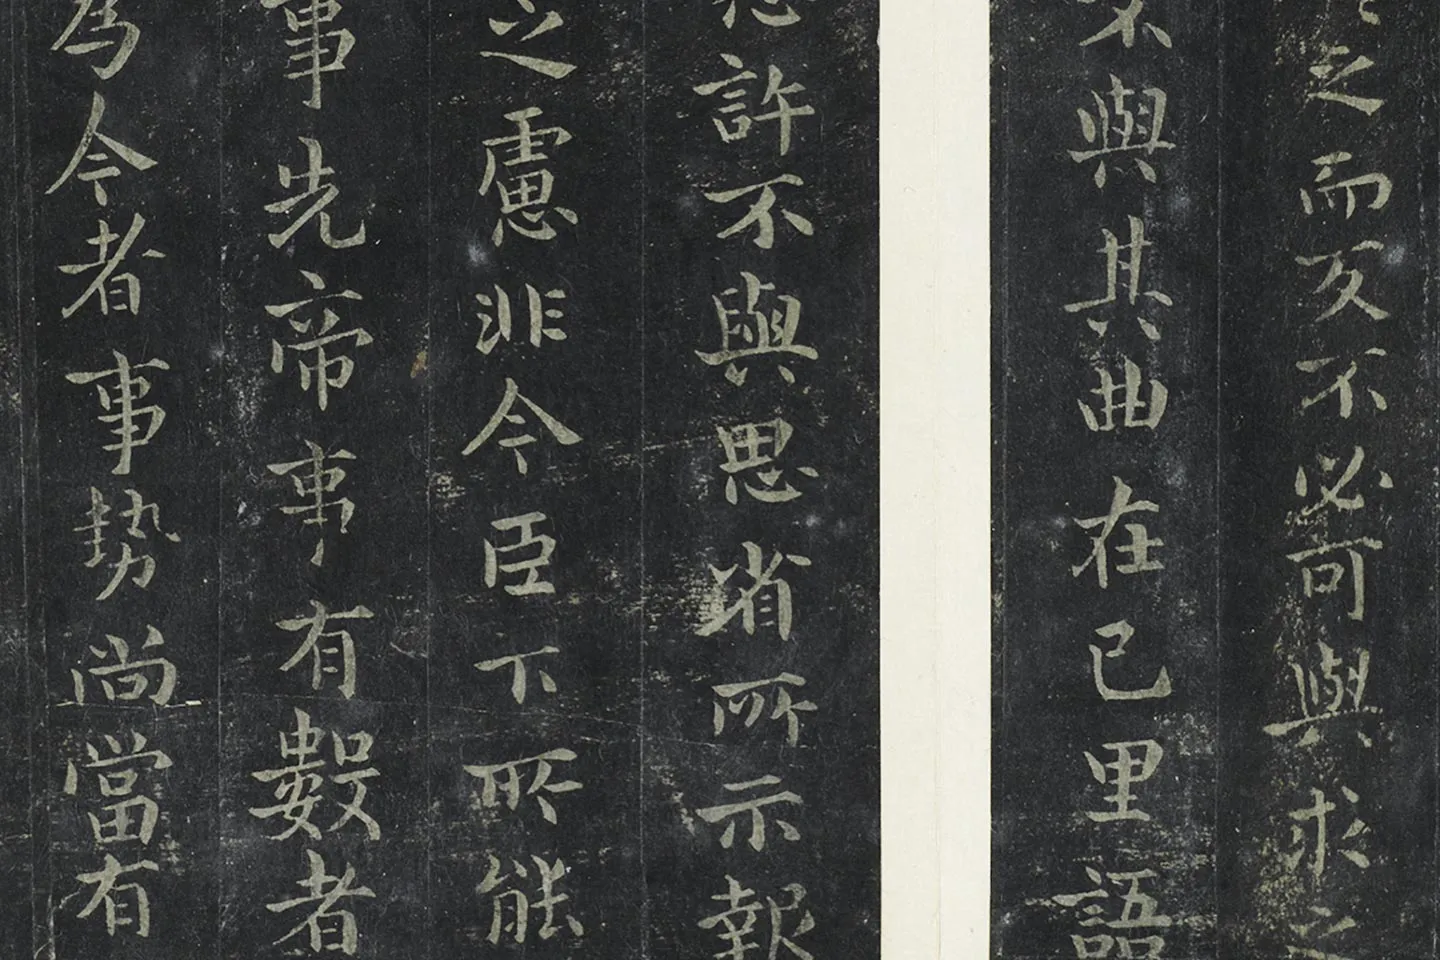 之而反不必可與求之
不與其曲在已里語
許不與思省所示報
之慮非今臣下所能
事先帝事有數者
為今者事勢尚當有